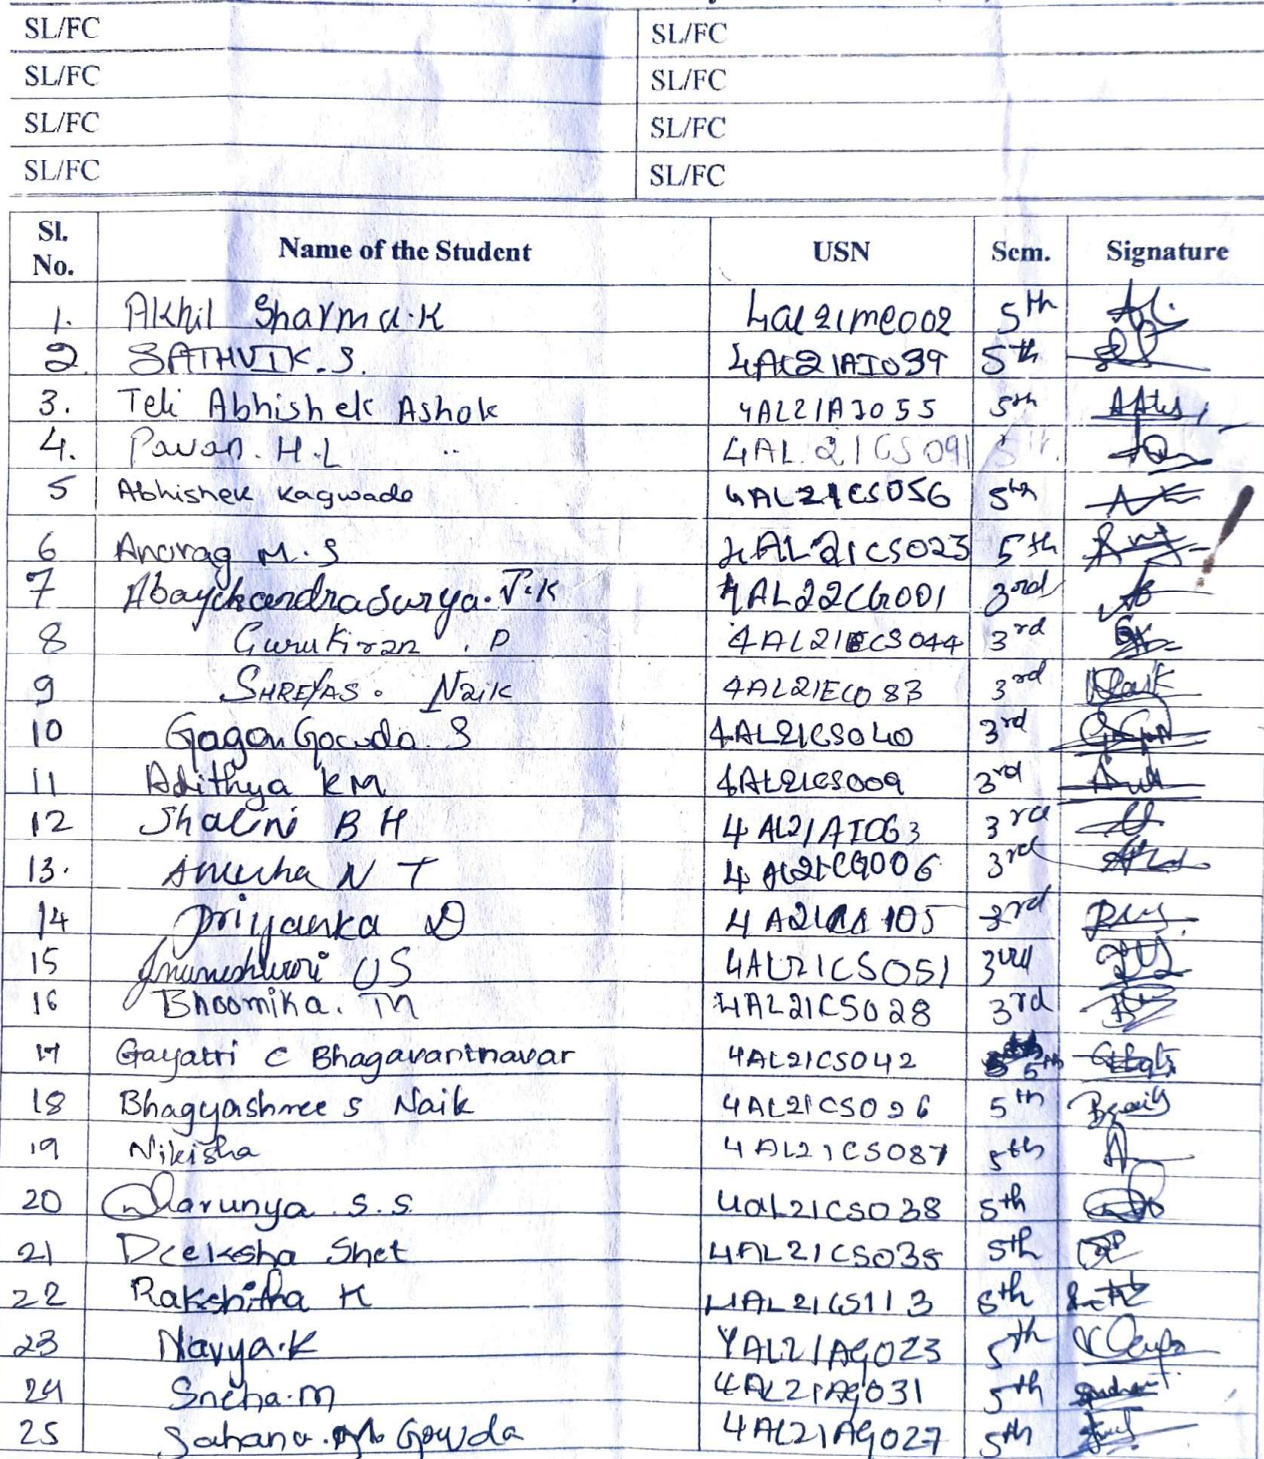 SL/FC SL/FC
SL/FC SL/FC
SL/FC SL/FC
SL/FC SL/FC
Sl. No. Name of the Student USN Sem. Signature
1. Akhil Sharma.K 4al21me002 5th
2. SATHVIK.S. 4AL21AI039 5th
3. Teli Abhishek Ashok 4AL21AI055 5th
4. Pavan.H.L 4AL21CS091 5th
5 Abhishek Kagwade 4AL21CS056 5th
6 Anurag M.S 4AL21CS023 5th
7 Abaychandrasurya.J.K 4AL22CG001 3rd
8 Gurukiran.P 4AL21CS044 3rd
9 SHREYAS. Naik 4AL21EC083 3rd
10 Gagan Gowda.S 4AL21CS040 3rd
11 Adithya KM 4AL21CS009 3rd
12 Shalini B H 4AL21AI063 3rd
13. Anusha N T 4AL21CG006 3rd
14 Priyanka D 3rd
15 US 4AL21CS051 3rd
16 Bhoomika.TM 4AL21CS028 3rd
17 Gayatri C Bhagavantnavar 4AL21CS042 5th
18 Bhagyashree S Naik 4AL21CS026 5th
19 Nikisha 4AL21CS087 5th
20 Dharunya.S.S. 4al21CS038 5th
21 Deeksha Shet 4AL21CS035 5th
22 Rakshitha K 4AL21CS113 5th
23 Navya.K 4AL21AG023 5th
24 Sneha.M 4AL21AG031 5th
25 Sahana. Gowda 4AL21AG027 5th